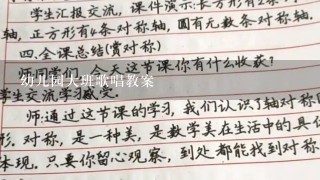 学生汇报交流，课件演示：长方形有2条对称
轴，正方形有4条对称轴，圆有无数条对称轴.
四.全课总结(赏对称)
今天这节课你有什么收获？
幼儿园大班歌唱教案
学生交流学习
师：通过这节课的学习，我们认识了轴对称
形.对称，是一种美，是数学美在生活中的具
体现.只要你留心观察，到处都能找到对称